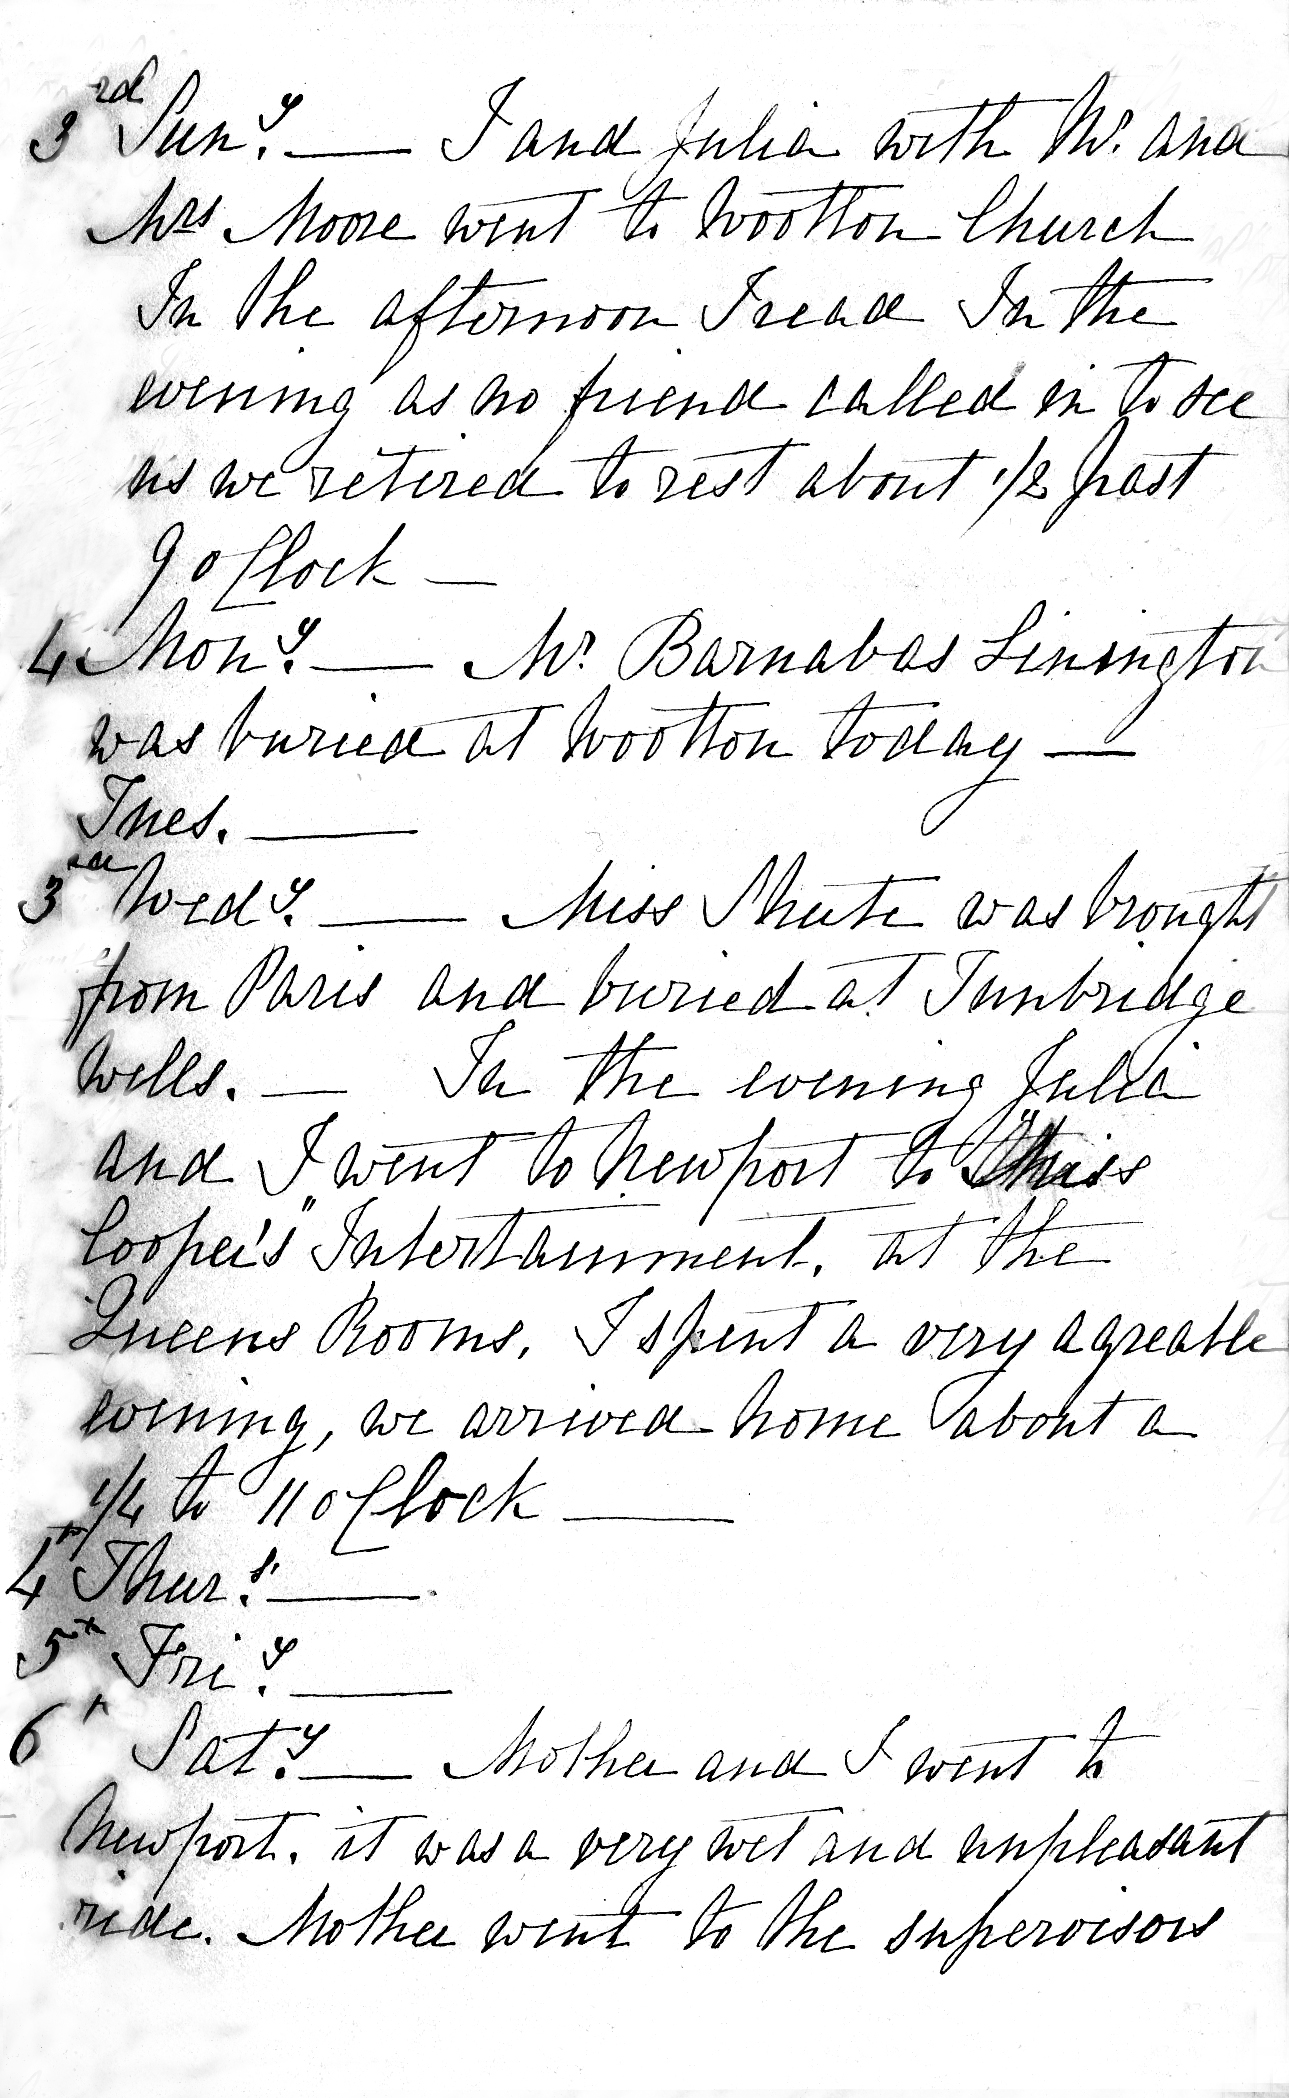 3rd Suny. — I and Julia with Mr. and
Mrs Moore went to Wootton Church
In the afternoon I read In the
evening as no friend called in to see
us we retired to rest about 1/2 past
9 oClock —
4 Mony. — Mr Barnabas Linington
was buried at Wootton today —
Tues. —
3rd Wedy. — Miss Shute was brought
from Paris and buried at Tunbridge
Wells. — In the evening Julia
and I went to Newport to "Miss
Cooper's" Intertainment. at the
Queens Rooms. I spent a very agreable
evening, we arrived home about a
1/4 to 11 oClock —
4th Thurs. —
5th Friy. —
6th Saty. — Mother and I went to
Newport. it was a very wet and unpleasant
ride. Mother went to the supervisors